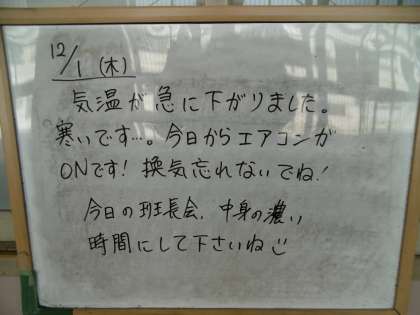 12/1 (木)
気温が急に下がりました。
寒いです…。今日からエアコンが
ONです! 換気忘れないでね!
今日の班長会、中身の濃い
時間にして下さいね